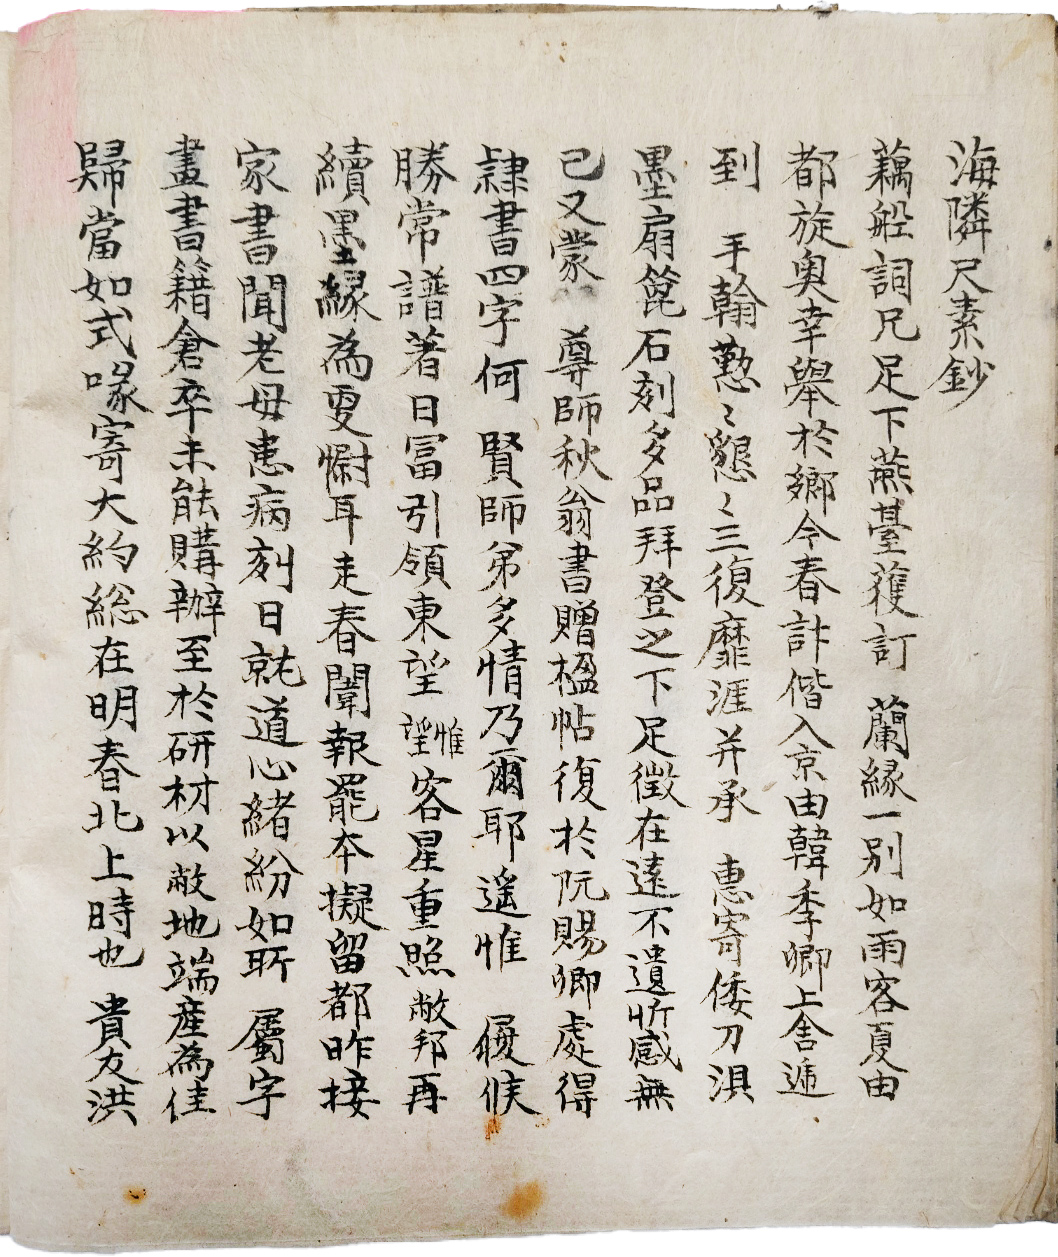 海隣尺素鈔
藕船詞兄足下燕臺獲訂 蘭緣一別如雨客夏由
都旋奥幸舉於鄉今春計偕入京由韓季卿上舍遞
到 手翰懃〻懇〻三復靡涯并承 惠寄倭刀淇
墨扇篦石刻多品拜登之下足徵在遠不遺忻感無
已又蒙 尊師秋翁書贈楹帖復於阮賜卿處得
隸書四字何 賢師弟多情乃爾耶遥惟 履候
勝常譜著日富引領東望望惟客星重照敝邦再
續墨緣為更慰耳走春闈報罷本擬留都昨接
家書聞老母患病刻日就道心緒紛如所 屬字
畫書籍倉卒未能購辦至於研材以敝地端產為佳
歸當如式喙寄大約総在明春北上時也 貴友洪